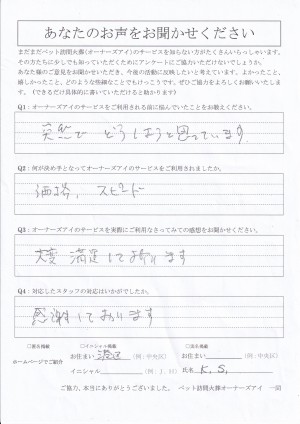 あなたのお声をお聞かせください
まだまだペット訪問火葬(オーナーズアイ)のサービスを知らない方がたくさんいらっしゃいます。
その方たちに少しでも知っていただくためにアンケートにご協力いただけないでしょうか。
あなた様のご意見をお聞かせいただき、今後の活動に反映したいと考えています。よかったこと、
嬉しかったこと、どのような些細なことでもけっこうです。ぜひご協力をよろしくお願いいたしま
す。(できるだけ具体的に書いていただけると助かります)
Q1:オーナーズアイのサービスをご利用される前に悩んでいたことをお教えください。
突然で どうしようと思っています
Q2:何が決め手となってオーナーズアイのサービスをご利用されましたか。
価格、スピード
Q3:オーナーズアイのサービスを実際にご利用なさってみての感想をお聞かせください。
大変 満足しております
Q4:対応したスタッフの対応はいかがでしたか。
感謝しております
ホームページでご紹介
□匿名掲載 □イニシャル掲載 □実名掲載
お住まい 港区 (例:中央区) お住まい (例:中央区)
イニシャル (例:J.H) 氏名 K.S.
ご協力、本当にありがとうございました。 ペット訪問火葬オーナーズアイ 一同